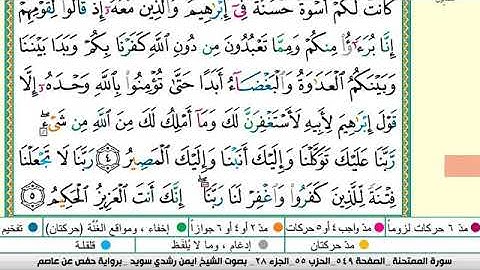 كَانَتْ لَكُمْ أُسْوَةٌ حَسَنَةٌ فِىٓ إِبْرَٰهِيمَ وَٱلَّذِينَ مَعَهُۥٓ إِذْ قَالُوا۟ لِقَوْمِهِمْ
إِنَّا بُرَءَٰٓؤُا۟ مِنكُمْ وَمِمَّا تَعْبُدُونَ مِن دُونِ ٱللَّهِ كَفَرْنَا بِكُمْ وَبَدَا بَيْنَنَا
وَبَيْنَكُمُ ٱلْعَدَٰوَةُ وَٱلْبَغْضَآءُ أَبَدًا حَتَّىٰ تُؤْمِنُوا۟ بِٱللَّهِ وَحْدَهُۥٓ إِلَّا
قَوْلَ إِبْرَٰهِيمَ لِأَبِيهِ لَأَسْتَغْفِرَنَّ لَكَ وَمَآ أَمْلِكُ لَكَ مِنَ ٱللَّهِ مِن شَىْءٍ ۖ
رَّبَّنَا عَلَيْكَ تَوَكَّلْنَا وَإِلَيْكَ أَنَبْنَا وَإِلَيْكَ ٱلْمَصِيرُ ٤ رَبَّنَا لَا تَجْعَلْنَا
فِتْنَةً لِّلَّذِينَ كَفَرُوا۟ وَٱغْفِرْ لَنَا رَبَّنَآ ۖ إِنَّكَ أَنتَ ٱلْعَزِيزُ ٱلْحَكِيمُ ٥
مدّ ٦ حركات لزوماً مدّ واجب ٤ أو ٥ حركات مدّ ٢ أو ٤ أو ٦ جوازاً إخفاء، ومواقع الغُنَّة (حركتان) تفخيم
مدّ حركتان إدغام، وما لا يُلفَظ قلقلة
سورة الممتحنة - الصفحة ٥٤٩ - الحزب ٥٥ - الجزء ٢٨ - بصوت الشيخ أيمن رشدي سويد - برواية حفص عن عاصم